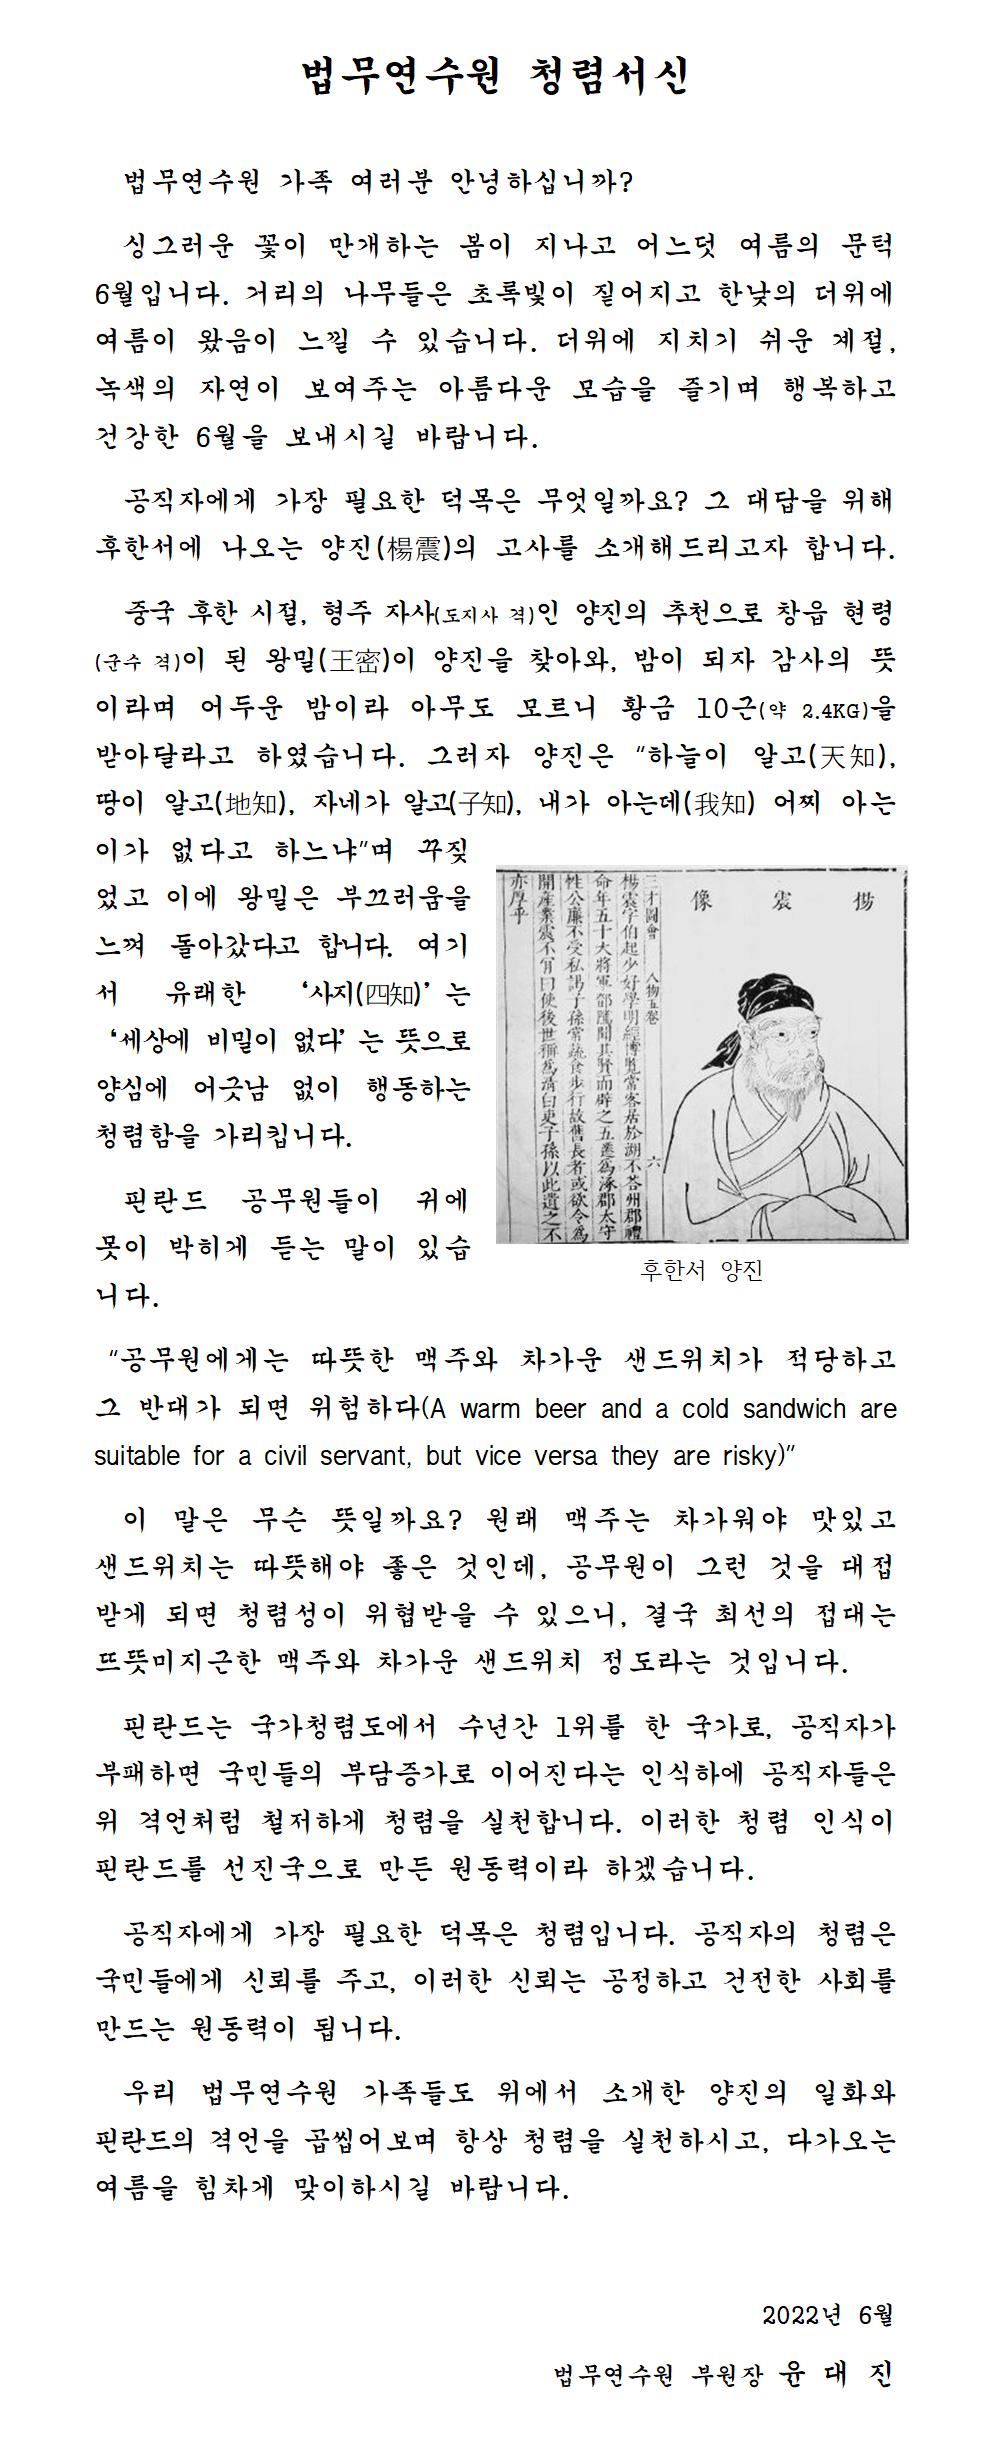 법무연수원 청렴서신
법무연수원 가족 여러분 안녕하십니까?
싱그러운 꽃이 만개하는 봄이 지나고 어느덧 여름의 문턱
6월입니다. 거리의 나무들은 초록빛이 짙어지고 한낮의 더위에
여름이 왔음이 느낄 수 있습니다. 더위에 지치기 쉬운 계절,
녹색의 자연이 보여주는 아름다운 모습을 즐기며 행복하고
건강한 6월을 보내시길 바랍니다.
공직자에게 가장 필요한 덕목은 무엇일까요? 그 대답을 위해
후한서에 나오는 양진(楊震)의 고사를 소개해드리고자 합니다.
중국 후한 시절, 형주 자사(도지사 격)인 양진의 추천으로 창읍 현령
(군수 격)이 된 왕밀(王密)이 양진을 찾아와, 밤이 되자 감사의 뜻
이라며 어두운 밤이라 아무도 모르니 황금 10근(약 2.4KG)을
받아달라고 하였습니다. 그러자 양진은 "하늘이 알고(天知),
땅이 알고(地知), 자네가 알고(子知), 내가 아는데(我知) 어찌 아는
이가 없다고 하느냐"며 꾸짖
었고 이에 왕밀은 부끄러움을
느껴 돌아갔다고 합니다. 여기
서 유래한 '사지(四知)' 는
'세상에 비밀이 없다' 는 뜻으로
양심에 어긋남 없이 행동하는
청렴함을 가리킵니다.
핀란드 공무원들이 귀에
못이 박히게 듣는 말이 있습
니다.
像 震 楊
三才圖會 人物五卷 六
楊震字伯起少好學明經博覽常客居於湖不答州郡禮
命年五十大將軍鄧騭聞其賢而辟之五遷爲涿郡太守
性公廉不受私謁子孫常蔬食步行故舊長者或欲令爲
開産業震不肯曰使後世稱爲清白吏子孫以此遺之不
亦厚乎
후한서 양진
"공무원에게는 따뜻한 맥주와 차가운 샌드위치가 적당하고
그 반대가 되면 위험하다(A warm beer and a cold sandwich are
suitable for a civil servant, but vice versa they are risky)"
이 말은 무슨 뜻일까요? 원래 맥주는 차가워야 맛있고
샌드위치는 따뜻해야 좋은 것인데, 공무원이 그런 것을 대접
받게 되면 청렴성이 위협받을 수 있으니, 결국 최선의 접대는
뜨뜻미지근한 맥주와 차가운 샌드위치 정도라는 것입니다.
핀란드는 국가청렴도에서 수년간 1위를 한 국가로, 공직자가
부패하면 국민들의 부담증가로 이어진다는 인식하에 공직자들은
위 격언처럼 철저하게 청렴을 실천합니다. 이러한 청렴 인식이
핀란드를 선진국으로 만든 원동력이라 하겠습니다.
공직자에게 가장 필요한 덕목은 청렴입니다. 공직자의 청렴은
국민들에게 신뢰를 주고, 이러한 신뢰는 공정하고 건전한 사회를
만드는 원동력이 됩니다.
우리 법무연수원 가족들도 위에서 소개한 양진의 일화와
핀란드의 격언을 곱씹어보며 항상 청렴을 실천하시고, 다가오는
여름을 힘차게 맞이하시길 바랍니다.
2022년 6월
법무연수원 부원장 윤 대 진